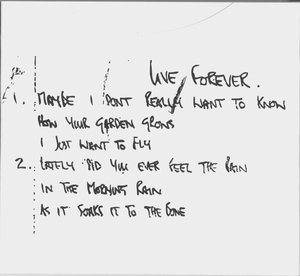 LIVE FOREVER.
1. MAYBE I DONT REALLY WANT TO KNOW
HOW YOUR GARDEN GROWS
I JUST WANT TO FLY
2. LATELY DID YOU EVER FEEL THE PAIN
IN THE MORNING RAIN
AS IT SOAKS IT TO THE BONE